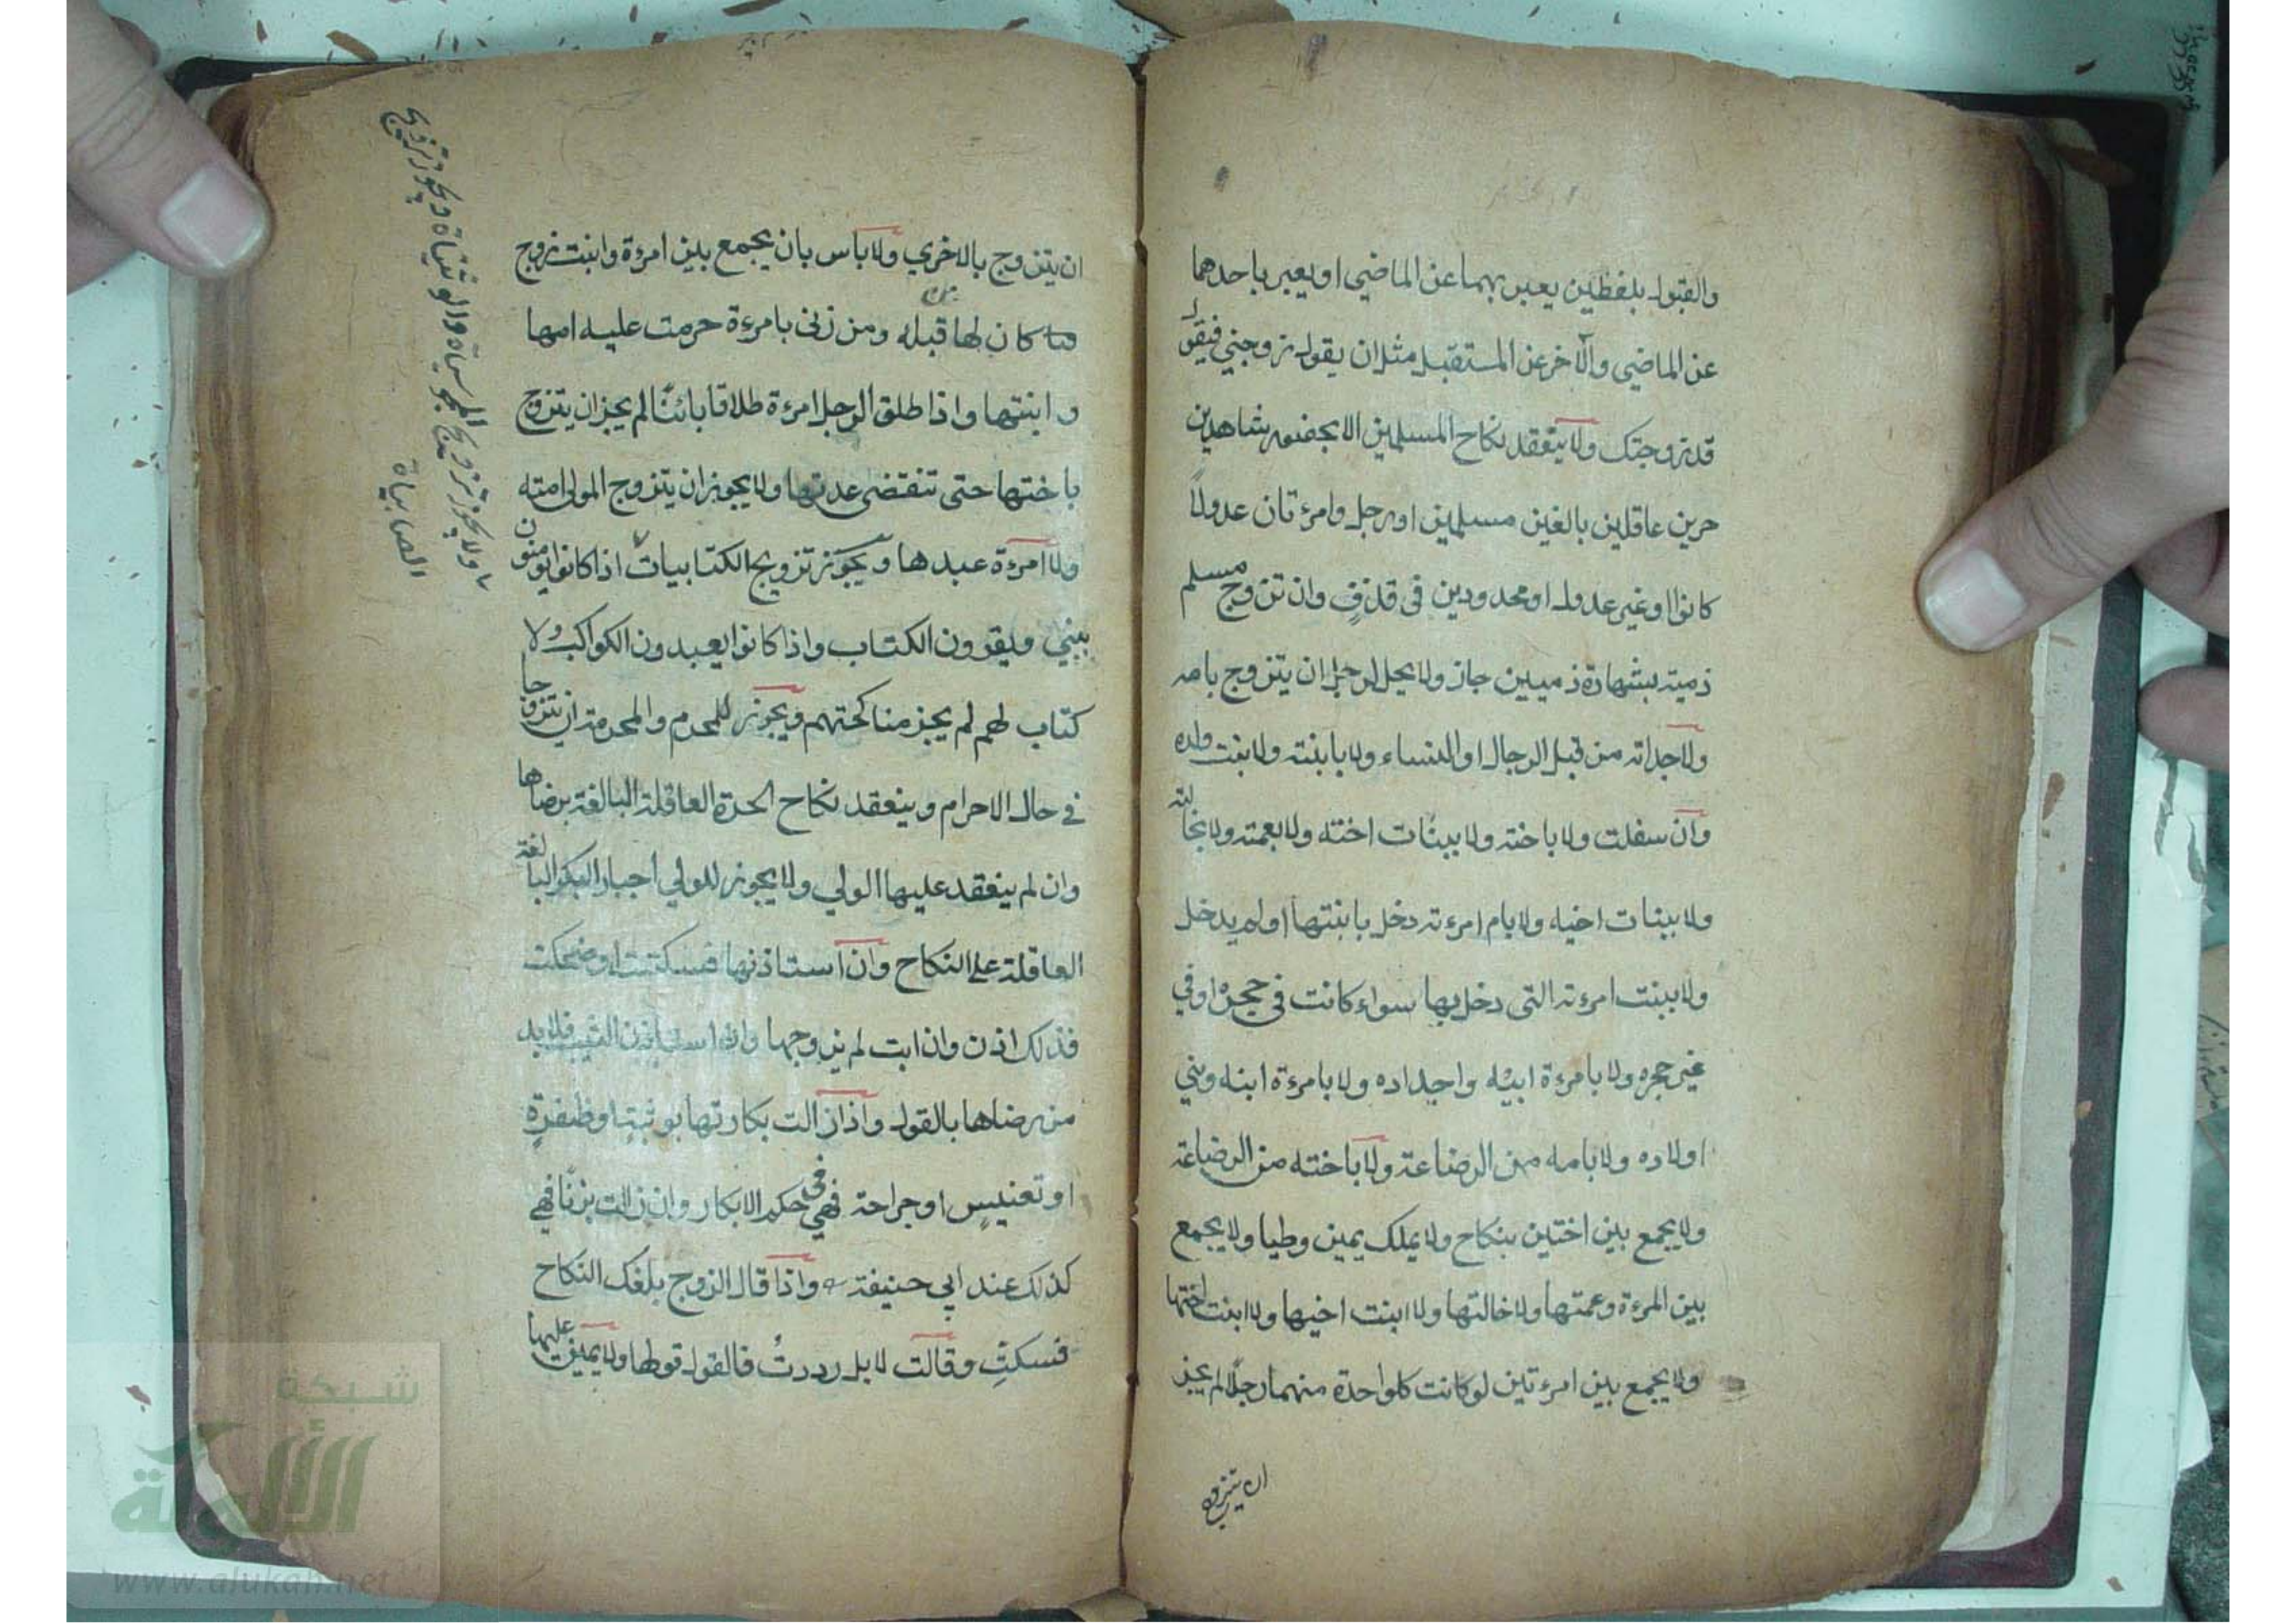 والقبول بلفظين يعبر بهما عن الماضي او يعبر باحدهما
عن الماضي والآخر عن المستقبل مثل ان يقول زوجني فيقول
قد زوجتك ولا ينعقد نكاح المسلمين الا بحضور شاهدين
حرين عاقلين بالغين مسلمين او رجل وامرءتان عدولاً
كانوا او غير عدول او محدودين فى قذفٍ وان تزوج مسلم
ذمية بشهادة ذميين جاز ولا يحل لرجل ان يتزوج بامه
ولا جداته من قبل الرجال او النساء ولا بابنته ولا بنت ولده
وان سفلت ولا باخته ولا ببنات اخته ولا بعمته ولا بخالته
ولا ببنات اخيه ولا بام امرءته دخل بابنتها او لم يدخل
ولا ببنت امرءته التى دخل بها سواء كانت فى حجره او في
غير حجره ولا بامرءة ابيه واجداده ولا بامرءة ابنه وبني
اولاده ولا بامه من الرضاعة ولا باخته من الرضاعة
ولا يجمع بين اختين بنكاح ولا بملك يمين وطيا ولا يجمع
بين المرءة وعمتها ولا خالتها ولا ابنت اخيها ولا ابنت اختها
ولا يجمع بين امرءتين لو كانت كل واحدة منهما رجلا لم يجز
ان يتزوج
ان يتزوج بالاخري ولا باس بان يجمع بين امرءة وابنت زوج
كان لها قبله ومن زنى بامرءة حرمت عليه امها
وابنتها واذا طلق الرجل امرءة طلاقا بائنًا لم يجز ان يتزوج
باختها حتى تنقضى عدتها ولا يجوز ان يتزوج المولى امته
ولا امرءة عبدها ويجوز تزويج الكتابيات اذا كانوا يومنون
بنبي ويقرون الكتاب واذا كانوا يعبدون الكواكب ولا
كتاب لهم لم يجز مناكحتهم ويجوز للمحرم والمحرمة ان يتزوجا
في حال الاحرام وينعقد نكاح الحرة العاقلة البالغة برضاها
وان لم ينعقد عليها الولي ولا يجوز للولي اجبار البكر البالغة
العاقلة على النكاح وان استاذنها فسكتت او ضحكت
فذلك اذن وان ابت لم يزوجها واذا استاذن الثيب فلا بد
من رضاها بالقول واذا زالت بكارتها بوثبة او ظفرةٍ
او تعنيسٍ او جراحة فهي فى حكم الابكار وان زالت بزنًا فهي
كذلك عند ابي حنيفة واذا قال الزوج بلغك النكاح
فسكتِ وقالت لا بل رددتُ فالقول قولها ولا يمين عليها
ولا يجوز تزويج المجوسياة والوثنياة ويجوز تزويج
الصابياة
شبكة
الألوكة
www.alukah.net